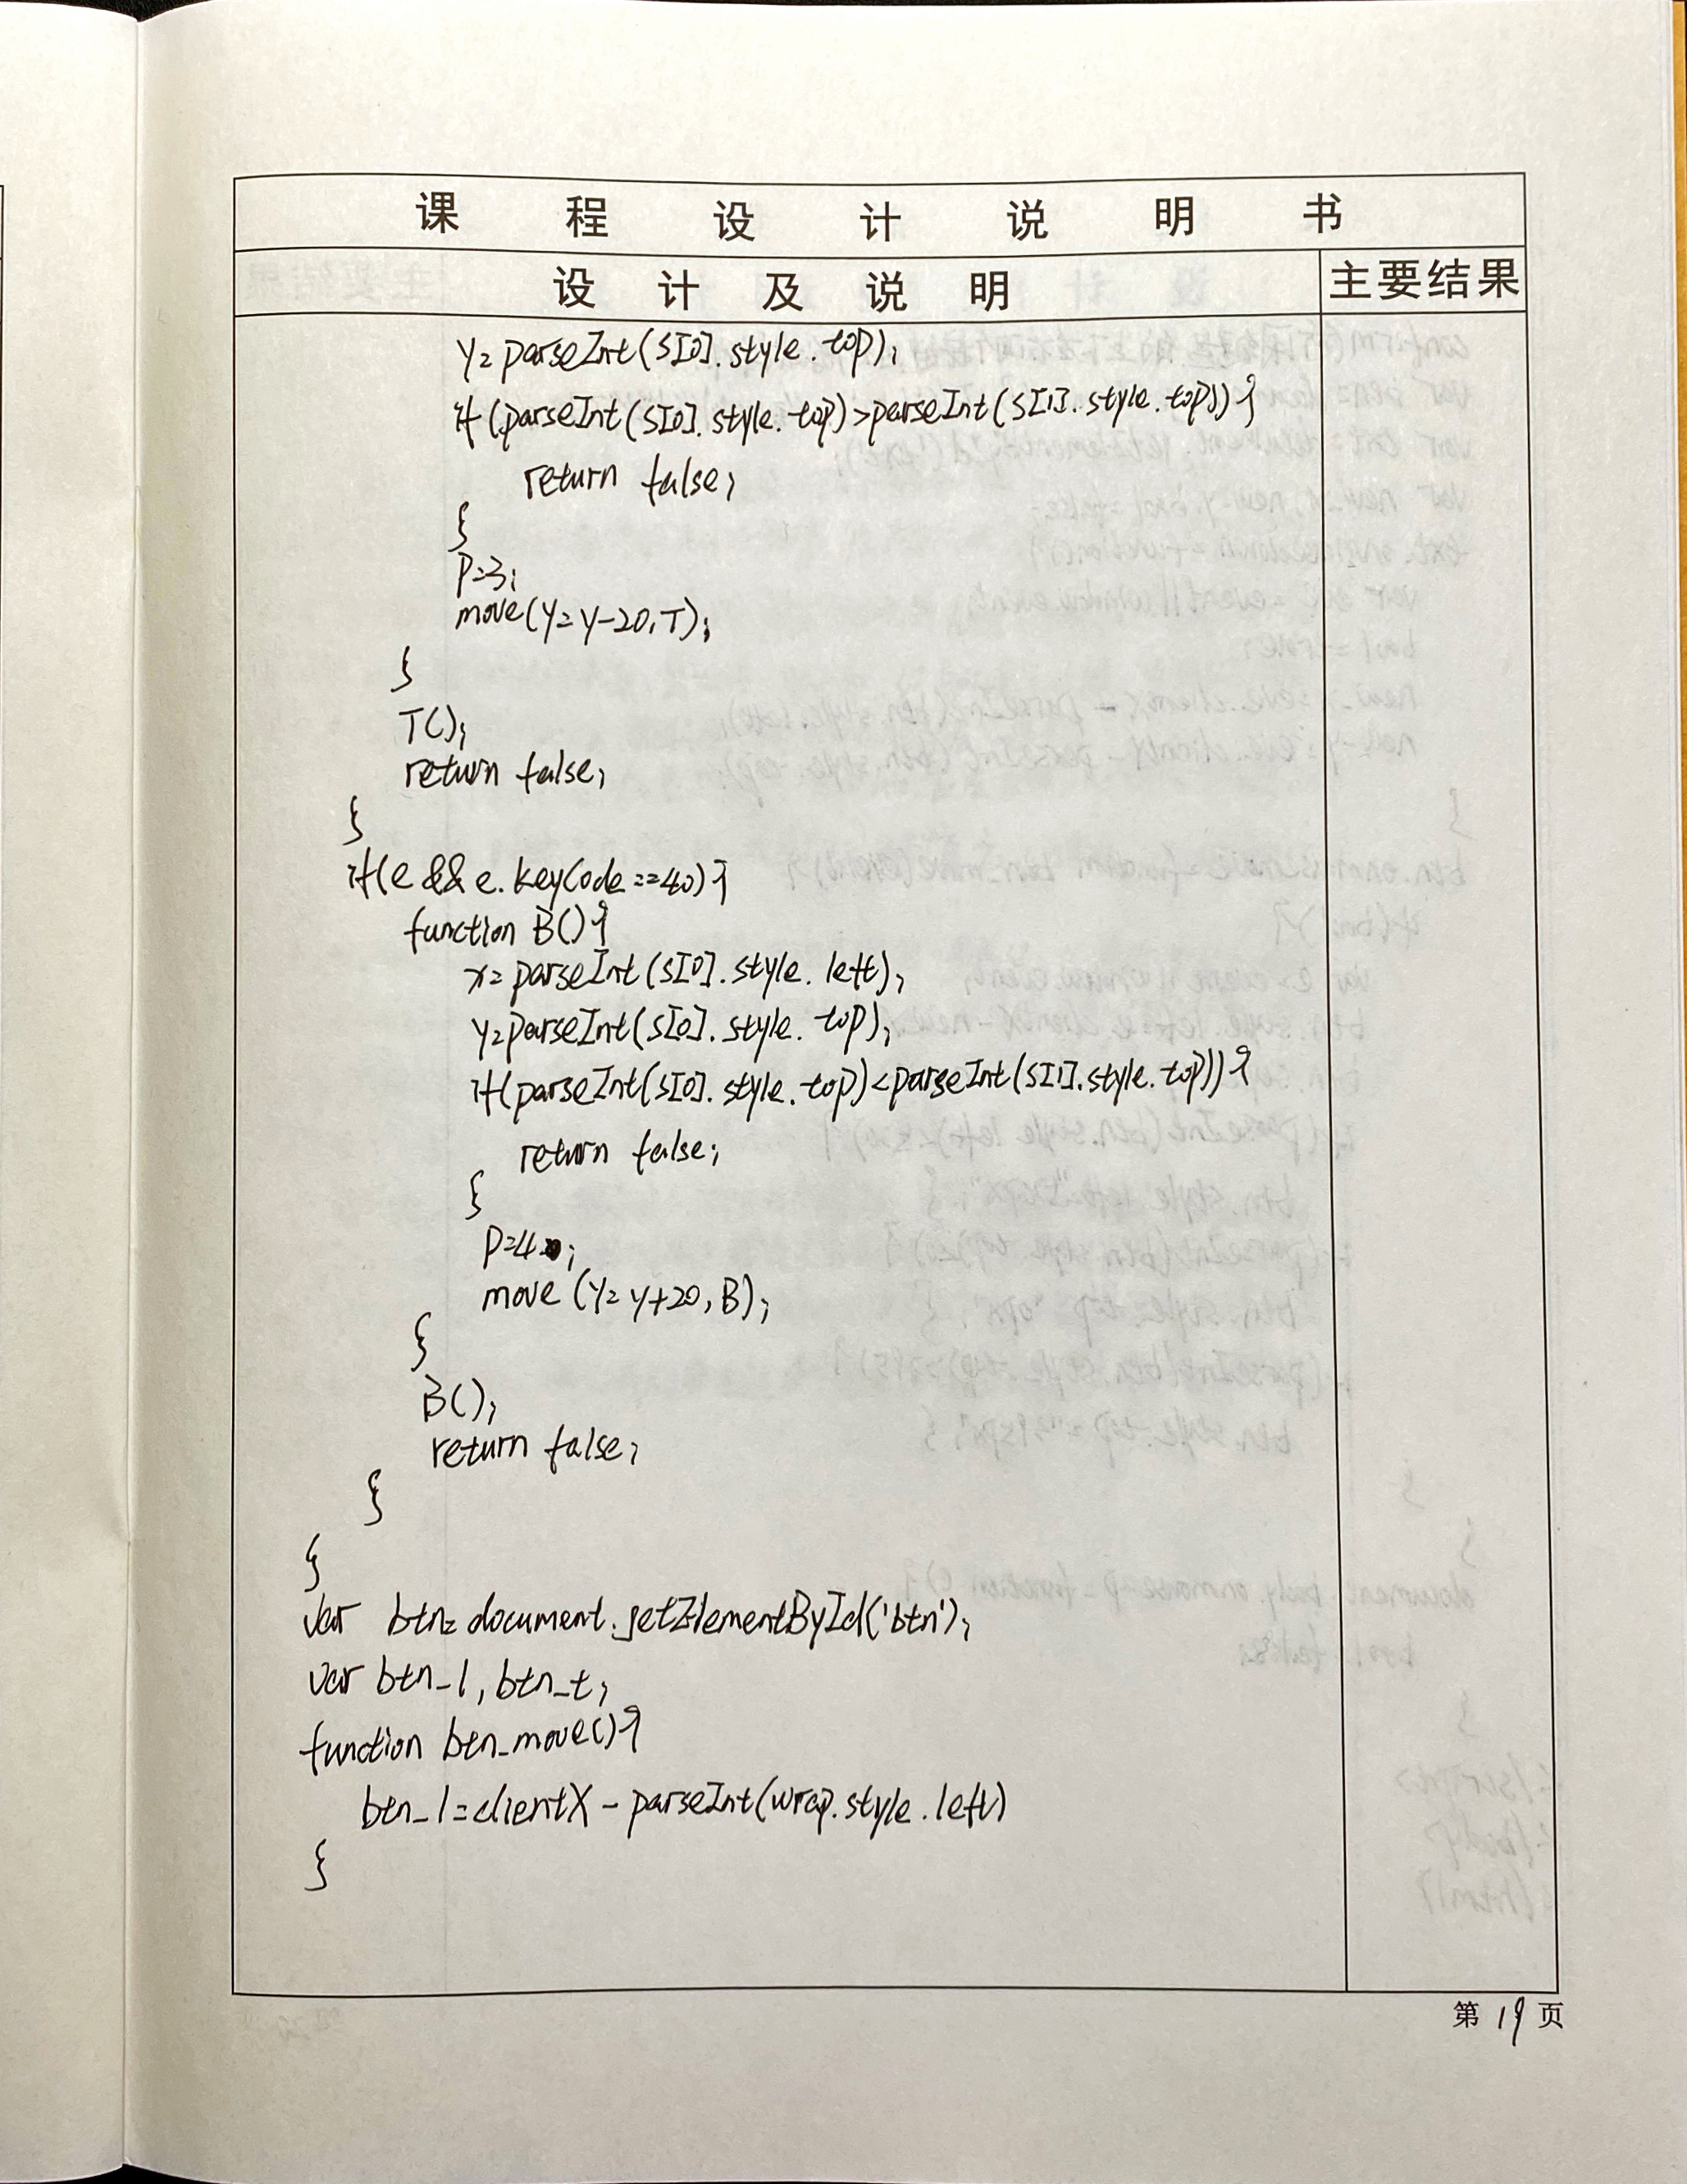 课程设计说明书
设计及说明 主要结果
y=parseInt(s[0].style.top);
if(parseInt(s[0].style.top)>parseInt(s[1].style.top)){
return false;
}
P=3;
move(y=y-20,T);
}
T();
return false;
}
if(e&&e.keyCode==40){
function B(){
x=parseInt(s[0].style.left);
y=parseInt(s[0].style.top);
if(parseInt(s[0].style.top)<parseInt(s[1].style.top)){
return false;
}
P=4;
move(y=y+20,B);
}
B();
return false;
}
}
var btn=document.getElementById('btn');
var btn_l,btn_t;
function btn_move(){
btn_l=clientX-parseInt(wrap.style.left)
}
第19页